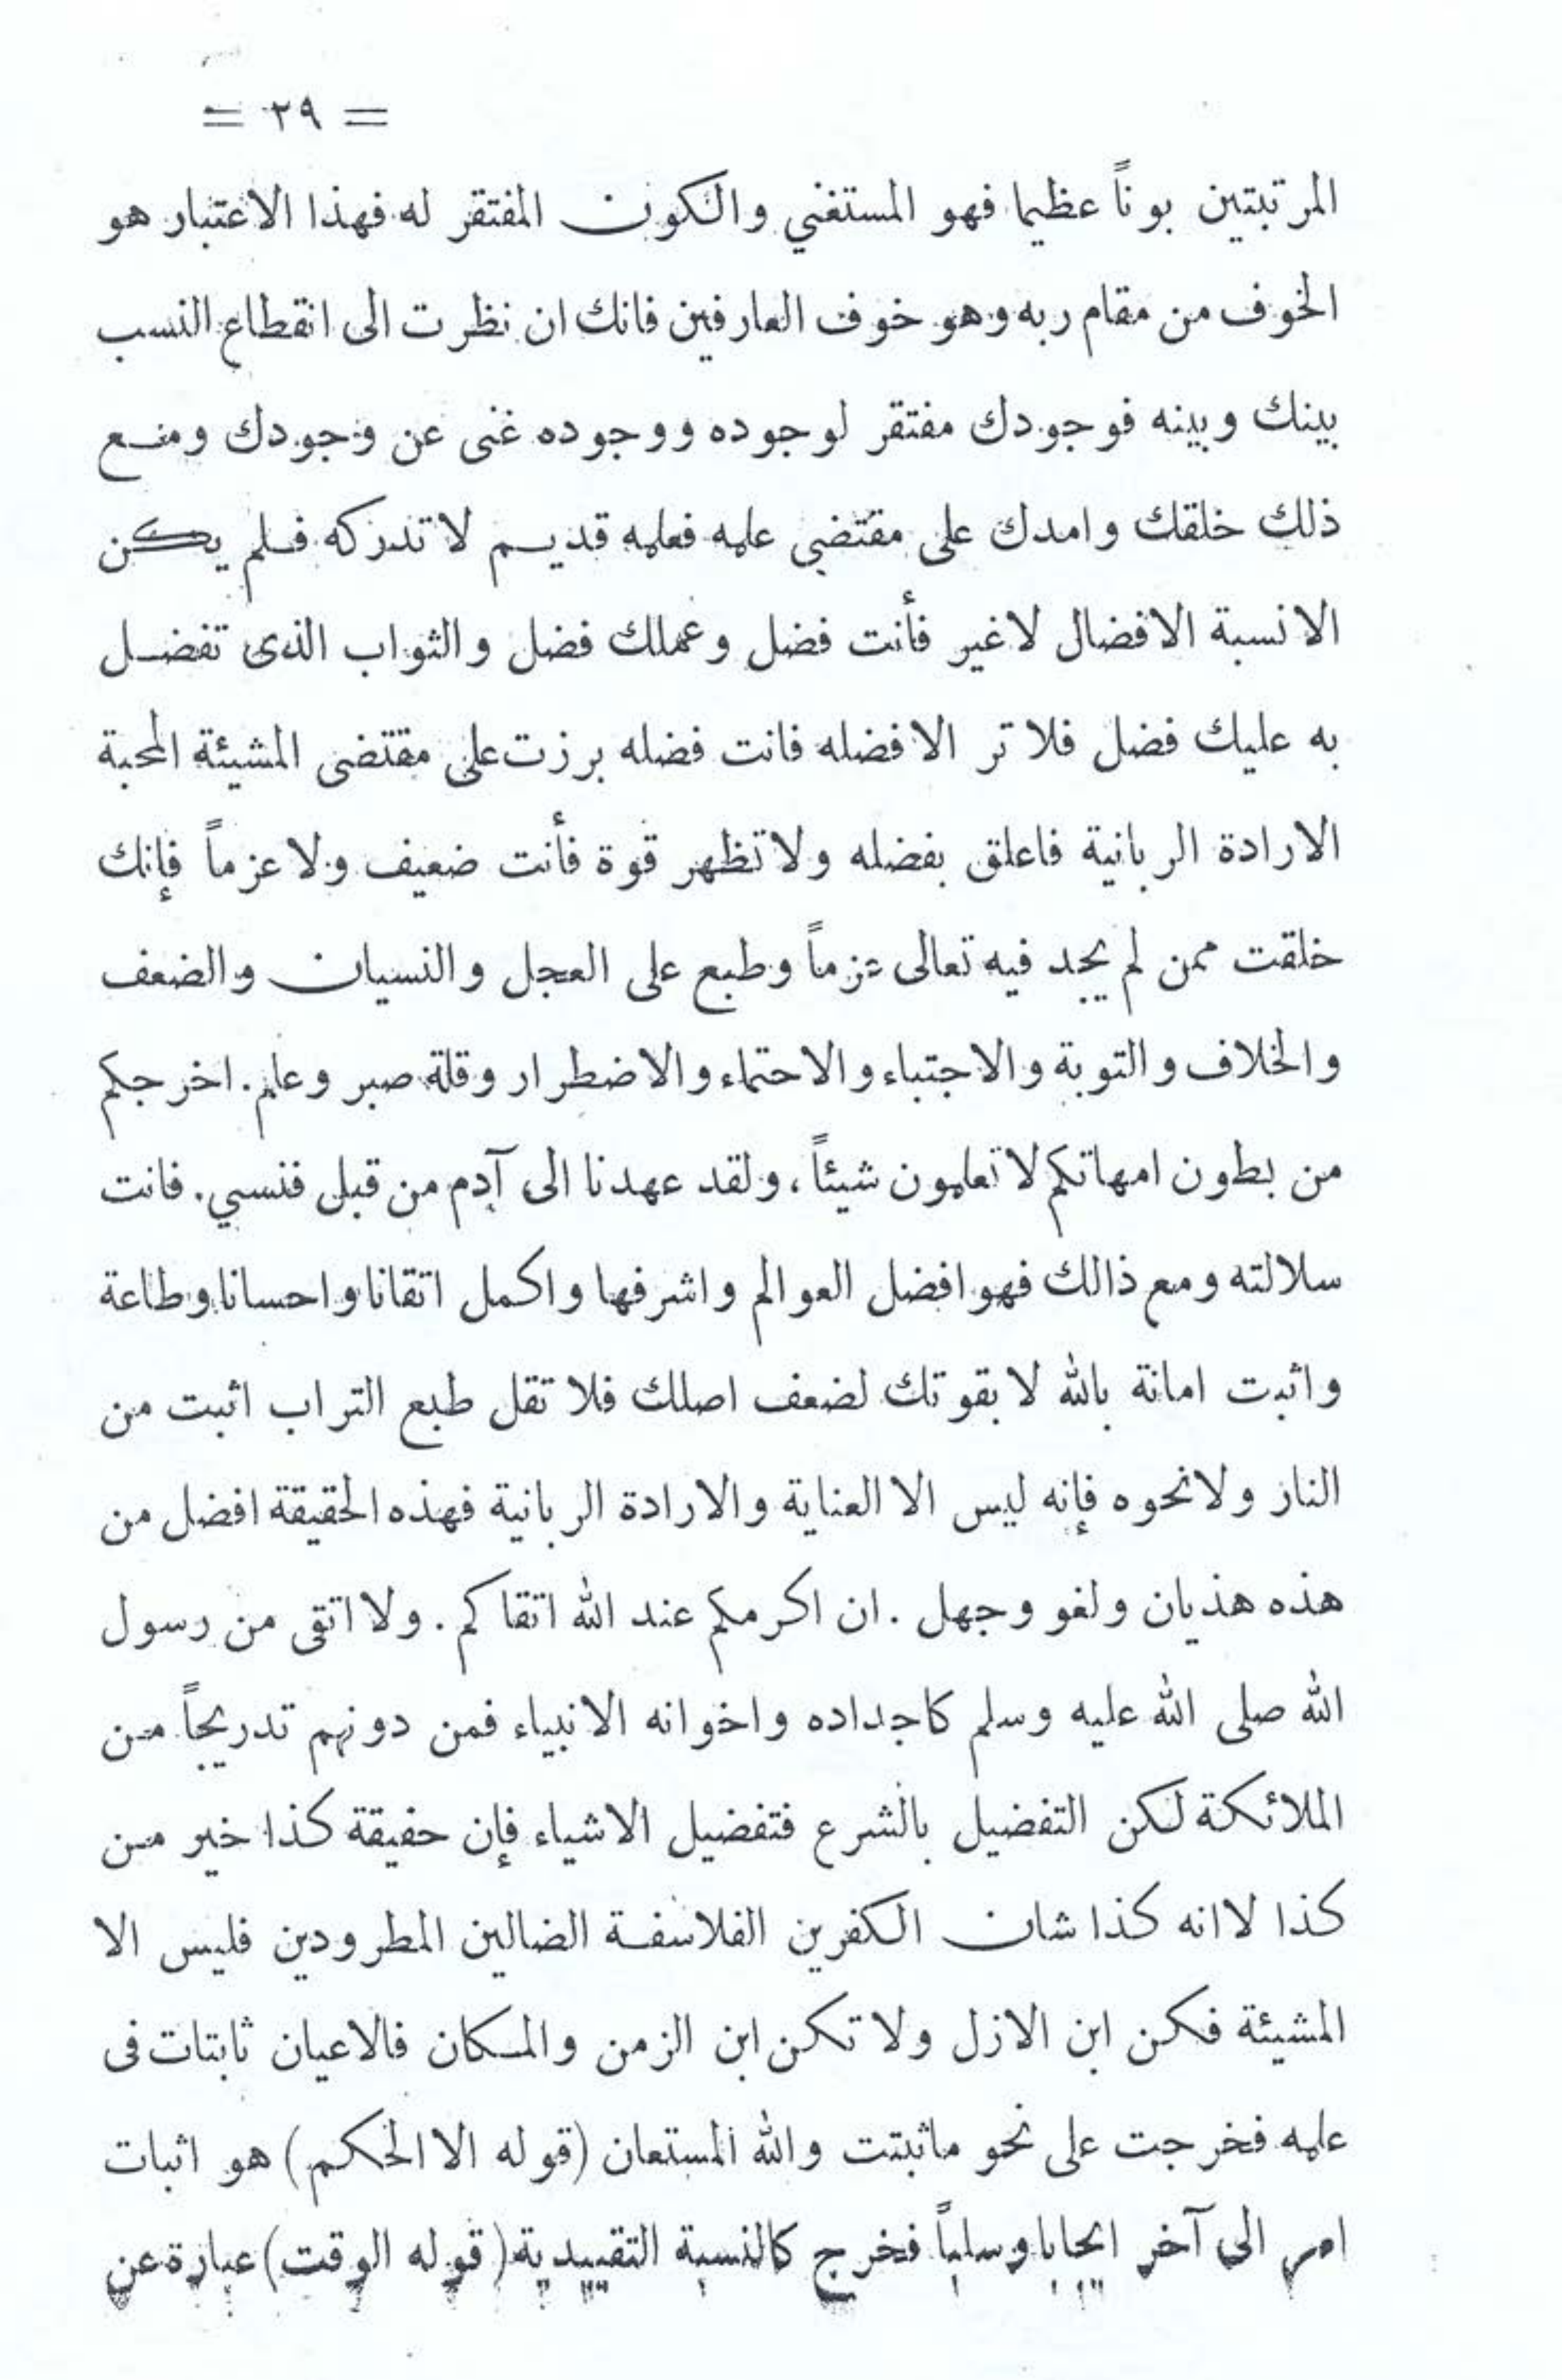 = ٢٩ =
المرتبتين بوناً عظيما فهو المستغني والكون المفتقر له فهذا الاعتبار هو
الخوف من مقام ربه وهو خوف العارفين فانك ان نظرت الى انقطاع النسب
بينك وبينه فوجودك مفتقر لوجوده ووجوده غنى عن وجودك ومع
ذلك خلقك وامدك على مقتضى علمه فعلمه قديم لا تدركه فلم يكن
الا نسبة الافضال لا غير فأنت فضل وعملك فضل والثواب الذى تفضل
به عليك فضل فلا تر الا فضله فانت فضله برزت على مقتضى المشيئة المحبة
الارادة الربانية فاعلق بفضله ولا تظهر قوة فأنت ضعيف ولا عزماً فإنك
خلقت ممن لم يجد فيه تعالى عزماً وطبع على العجل والنسيان والضعف
والخلاف والتوبة والاجتباء والاحتماء والاضطرار وقلة صبر وعلم. اخرجكم
من بطون امهاتكم لا تعلمون شيئاً، ولقد عهدنا الى آدم من قبل فنسي. فانت
سلالته ومع ذالك فهو افضل العوالم واشرفها واكمل اتقانا واحسانا وطاعة
واثبت امانة بالله لا بقوتك لضعف اصلك فلا تقل طبع التراب اثبت من
النار ولا نحوه فإنه ليس الا العناية والارادة الربانية فهذه الحقيقة افضل من
هذه هذيان ولغو وجهل . ان اكرمكم عند الله اتقاكم . ولا اتقى من رسول
الله صلى الله عليه وسلم كاجداده واخوانه الانبياء فمن دونهم تدريجاً من
الملائكة لكن التفضيل بالشرع فتفضيل الاشياء فإن حقيقة كذا خير من
كذا لانه كذا شان الكفرين الفلاسفة الضالين المطرودين فليس الا
المشيئة فكن ابن الازل ولا تكن ابن الزمن والمكان فالاعيان ثابتات فى
علمه فخرجت على نحو ماثبتت والله المستعان (قوله الا الحكم) هو اثبات
امر الى آخر ايجابا وسلباً فخرج كالنسبة التقييدية (قوله الوقت) عبارة عن